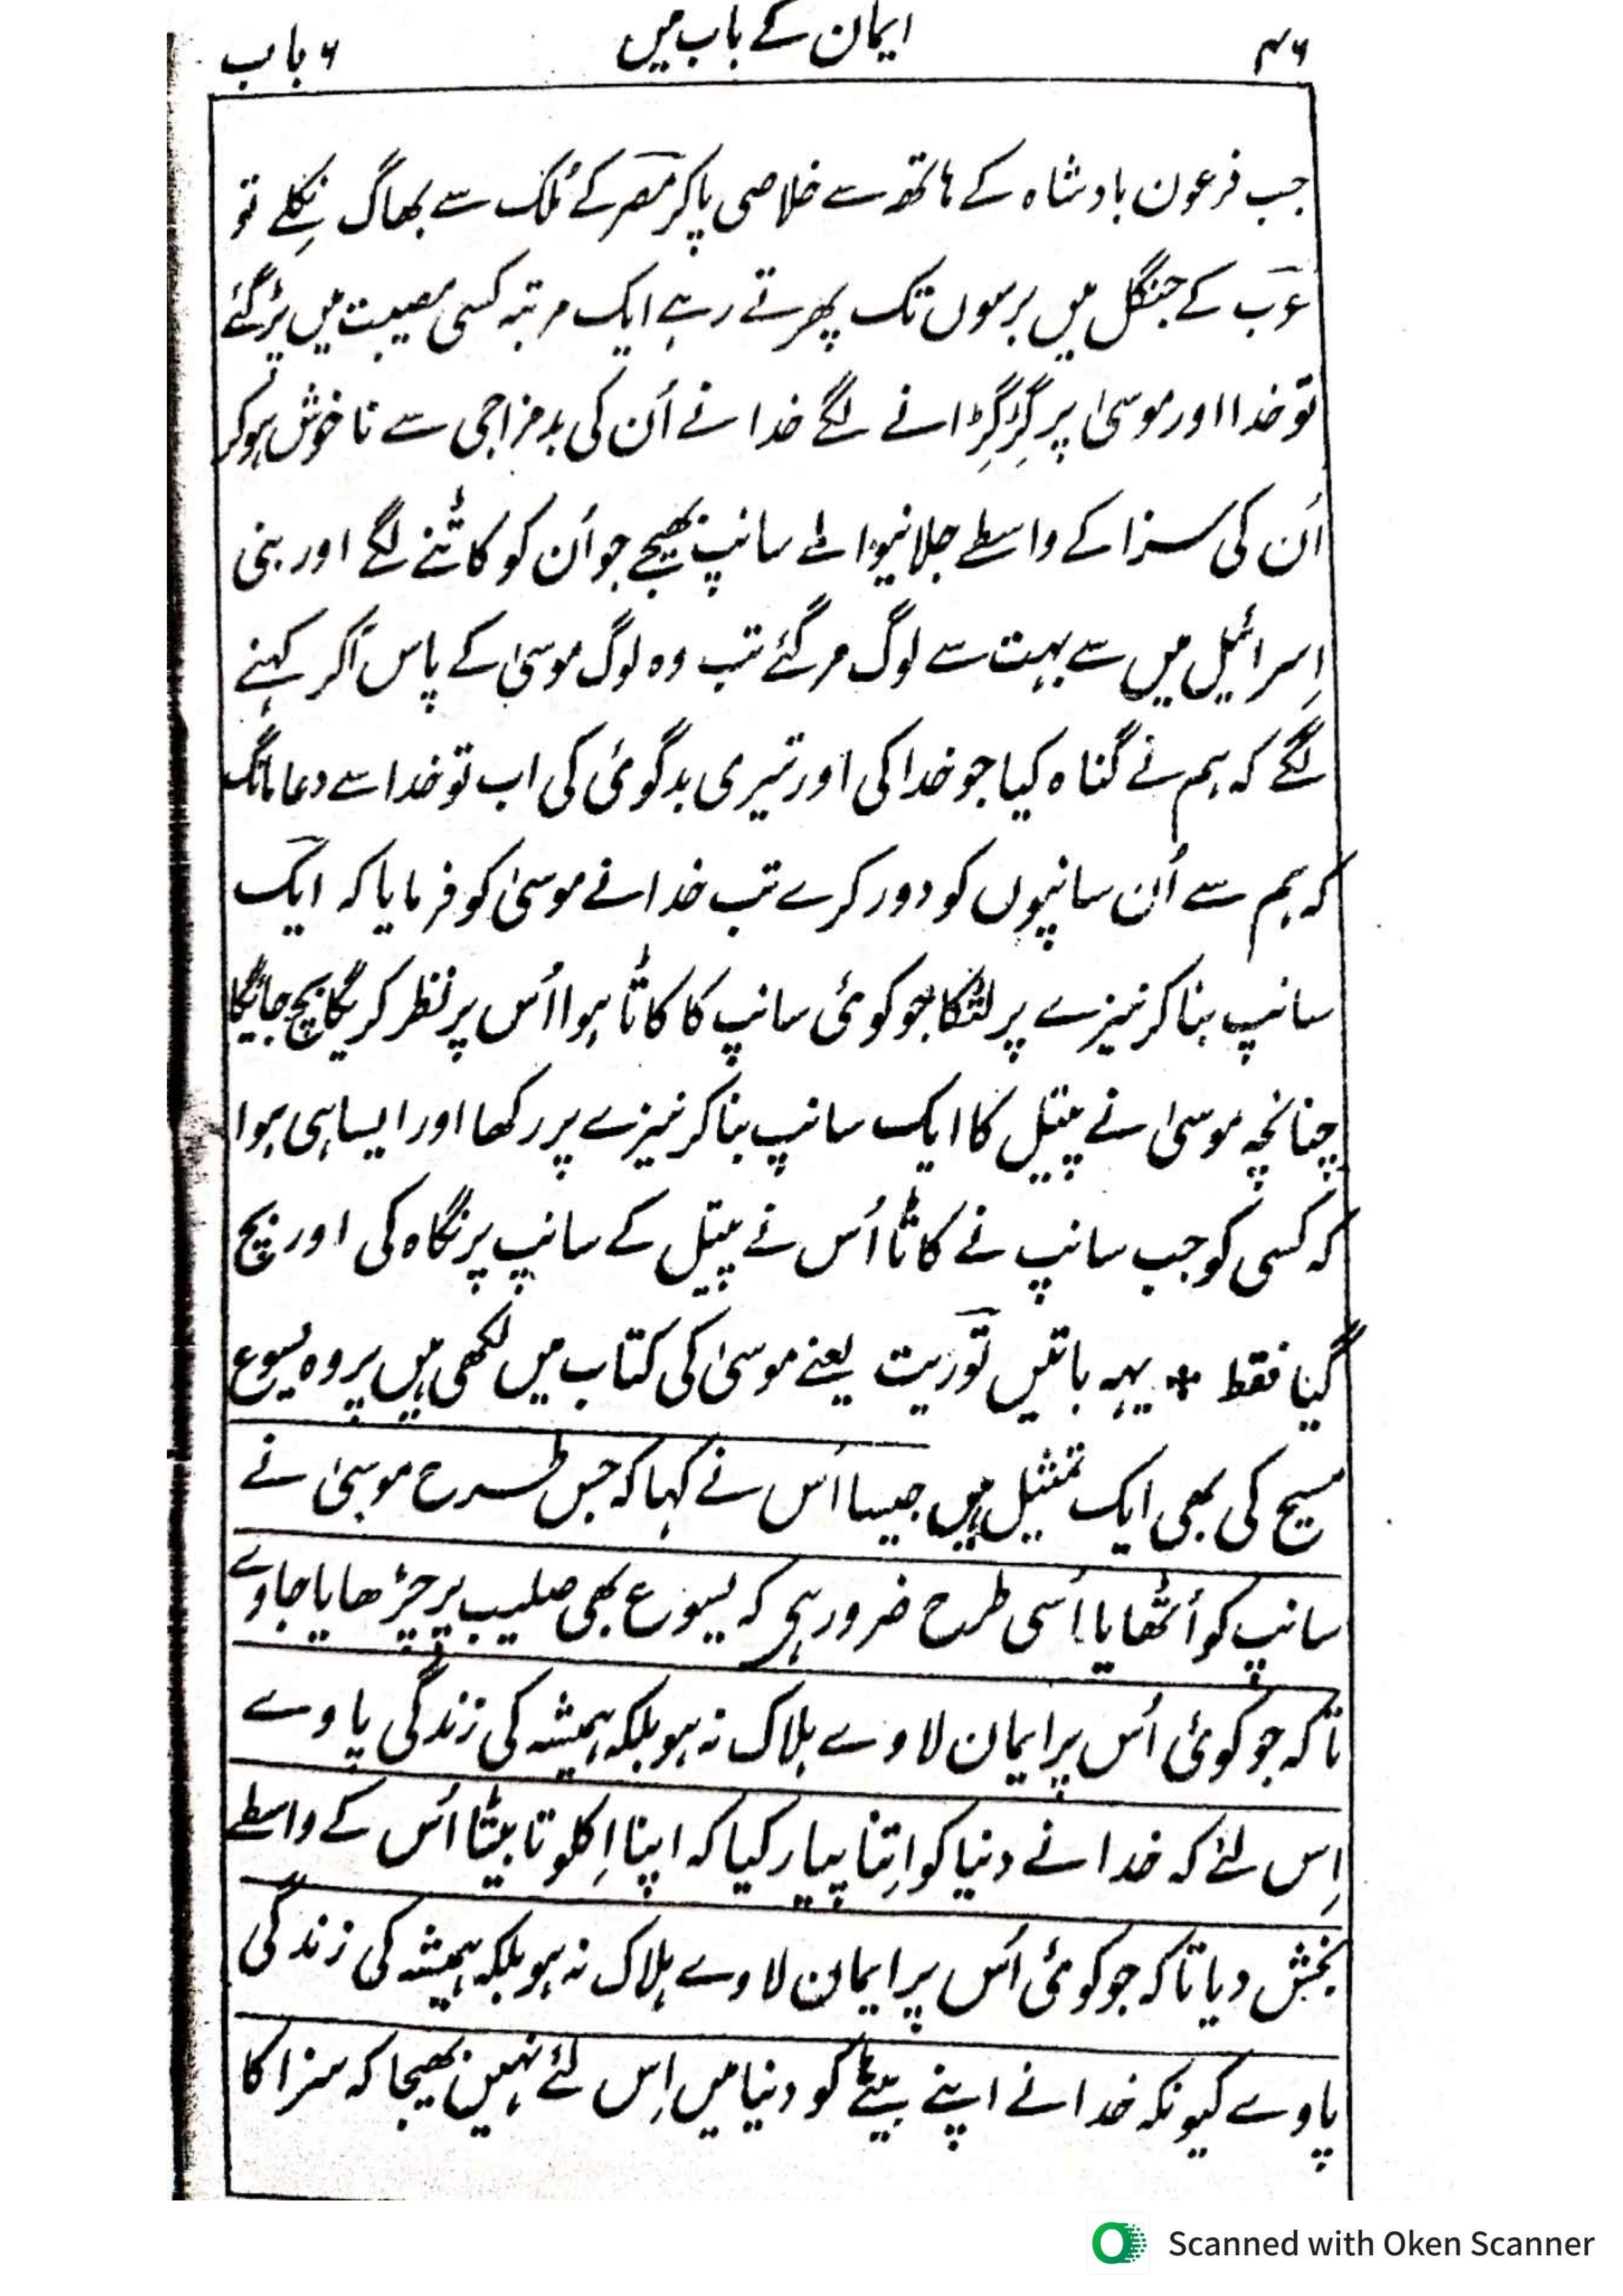 ۴۶ ایمان کے باب میں ۶ باب
جب فرعون بادشاہ کے ہاتھ سے خلاصی پاکر مصر کے مُلک سے بھاگ نِکلے تو
عرب کے جنگل میں برسوں تک پھرتے رہے ایک مرتبہ کسی مصیبت میں پڑگئے
تو خدا اور موسیٰ پر گِڑگِڑانے لگے خدا نے اُن کی بدمزاجی سے ناخوش ہوکر
اُن کی سزا کے واسطے جلانیوالے سانپ بھیجے جو اُن کو کاٹنے لگے اور بنی
اِسرائیل میں سے بہت سے لوگ مرگئے تب وہ لوگ موسیٰ کے پاس آکر کہنے
لگے کہ ہم نے گناہ کیا جو خدا کی اور تیری بدگوئی کی اب تو خدا سے دعا مانگ
کہ ہم سے اُن سانپوں کو دور کرے تب خدا نے موسیٰ کو فرمایا کہ ایک
سانپ بناکر نیزے پر لٹکا جو کوئی سانپ کا کاٹا ہوا اُس پر نظر کریگا بچ جائیگا
چنانچہ موسیٰ نے پیتل کا ایک سانپ بناکر نیزے پر رکھا اور ایسا ہی ہوا
کہ کسی کو جب سانپ نے کاٹا اُس نے پیتل کے سانپ پر نگاہ کی اور بچ
گیا فقط * یہہ باتیں توریت یعنے موسیٰ کی کتاب میں لکھی ہیں پر وہ یسوع
مسیح کی بھی ایک تمثیل ہیں جیسا اُس نے کہا کہ جس طرح موسیٰ نے
سانپ کو اُٹھایا اُسی طرح ضرور ہی کہ یسوع بھی صلیب پر چڑھایا جاوے
تاکہ جو کوئی اُس پر ایمان لاوے ہلاک نہ ہو بلکہ ہمیشہ کی زندگی پاوے
اِس لئے کہ خدا نے دنیا کو اِتنا پیار کیا کہ اپنا اِکلوتا بیٹا اُس کے واسطے
بخش دیا تاکہ جو کوئی اُس پر ایمان لاوے ہلاک نہ ہو بلکہ ہمیشہ کی زندگی
پاوے کیونکہ خدا نے اپنے بیٹے کو دنیا میں اِس لئے نہیں بھیجا کہ سزا کا
Scanned with Oken Scanner